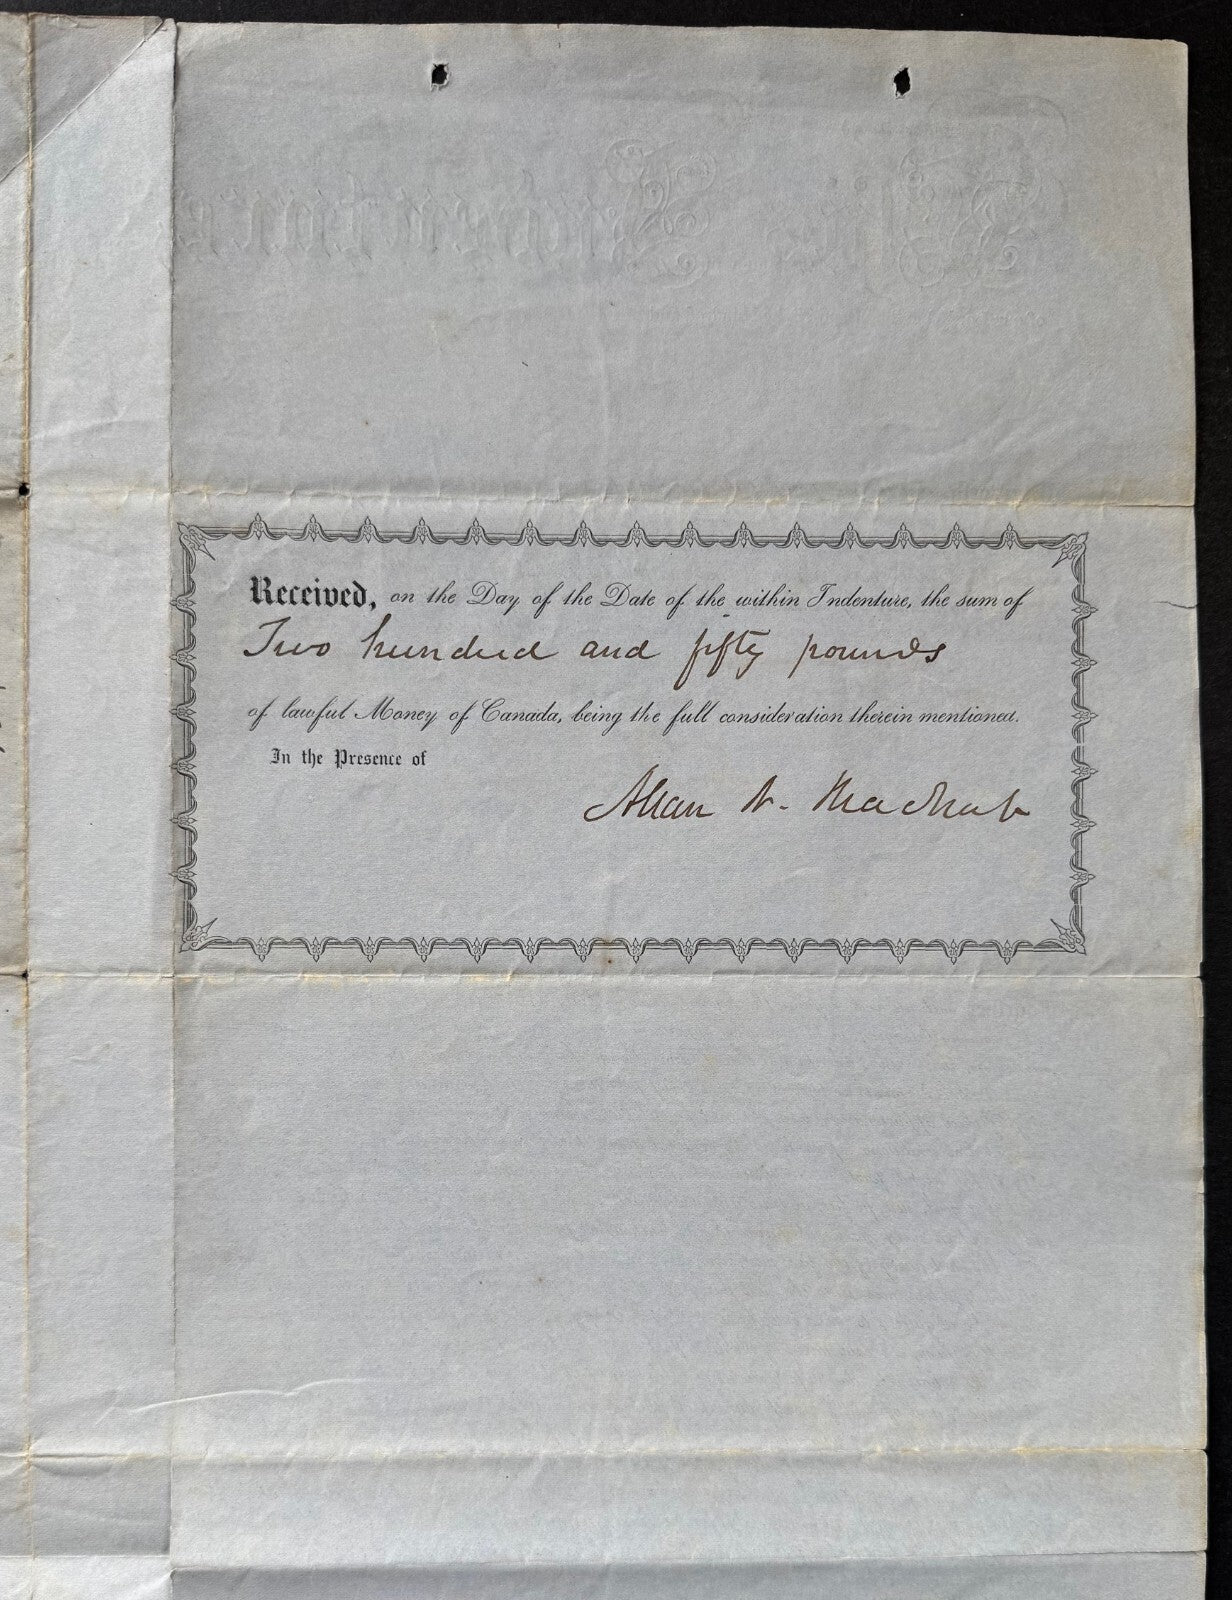 Received, on the Day of the Date of the within Indenture, the sum of
Two hundred and fifty pounds
of lawful Money of Canada, being the full consideration therein mentioned.
In the Presence of
Allan N. MacNab